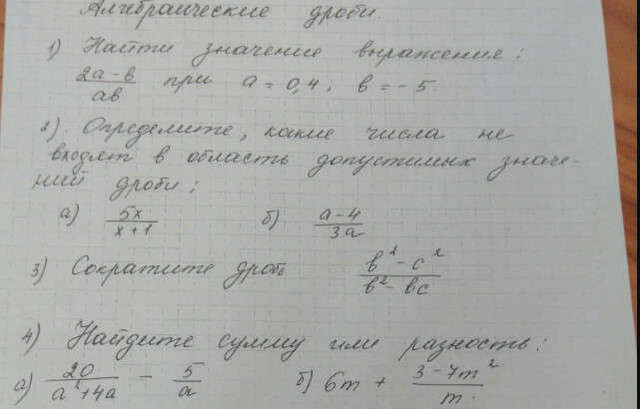 Алгебраические дроби.
1) Найти значение выражения:
(2a-b)/(ab) при a = 0,4; b = - 5.
2). Определите, какие числа не
входят в область допустимых значе-
ний дроби:
а) 5x/(x+1) б) (a-4)/(3a)
3) Сократите дробь (b²-c²)/(b²-bc)
4) Найдите сумму или разность:
а) 20/(a²+4a) - 5/a б) 6m + (3-7m²)/m.